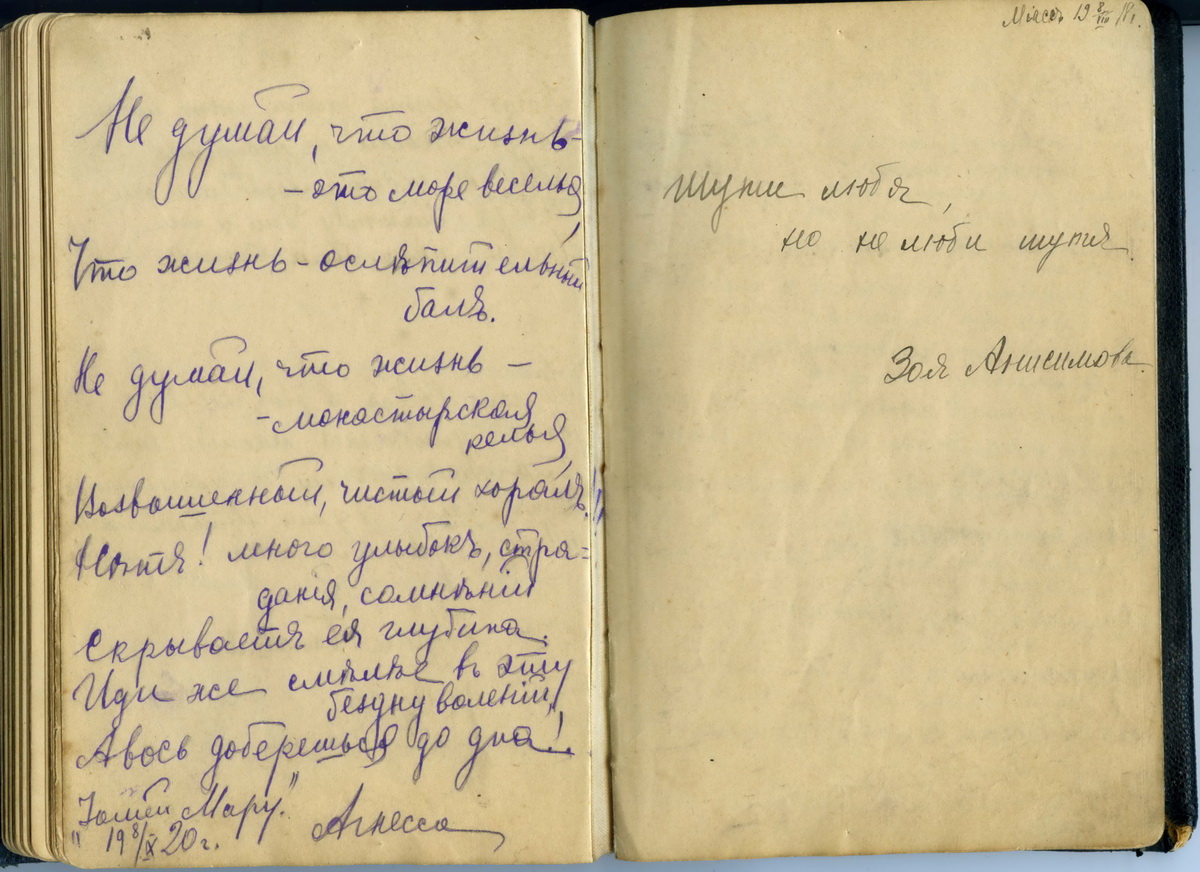 Не думай, что жизнь-
-это море веселья,
Что жизнь-ослѣпительный
балъ.
Не думай, что жизнь –
-монастырская
келья,
Возвышенный, чистый хоралъ!
Нѣтъ! много улыбокъ, стра=
данія, сомнѣній
Скрываетъ ея глубина.
Иди же смѣлѣе въ эту
бездну воленій,
Авось доберешься до дна!..
Мару."
" 19 8/IX 20 г.
Агнесса
Міассъ 19 8/III 18 г.
Шути любя,
но не люби шутя.
Зоя Анисимова.